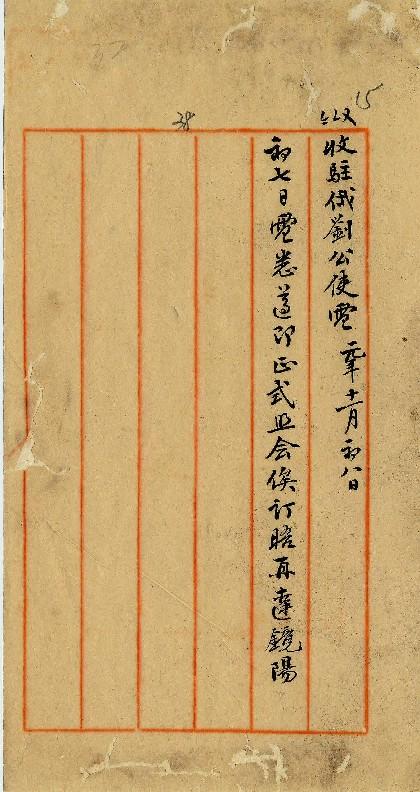 收駐俄劉公使電 元年十一月初八日
初七日電悉遵即正式照会俟訂晤再達鏡陽
15